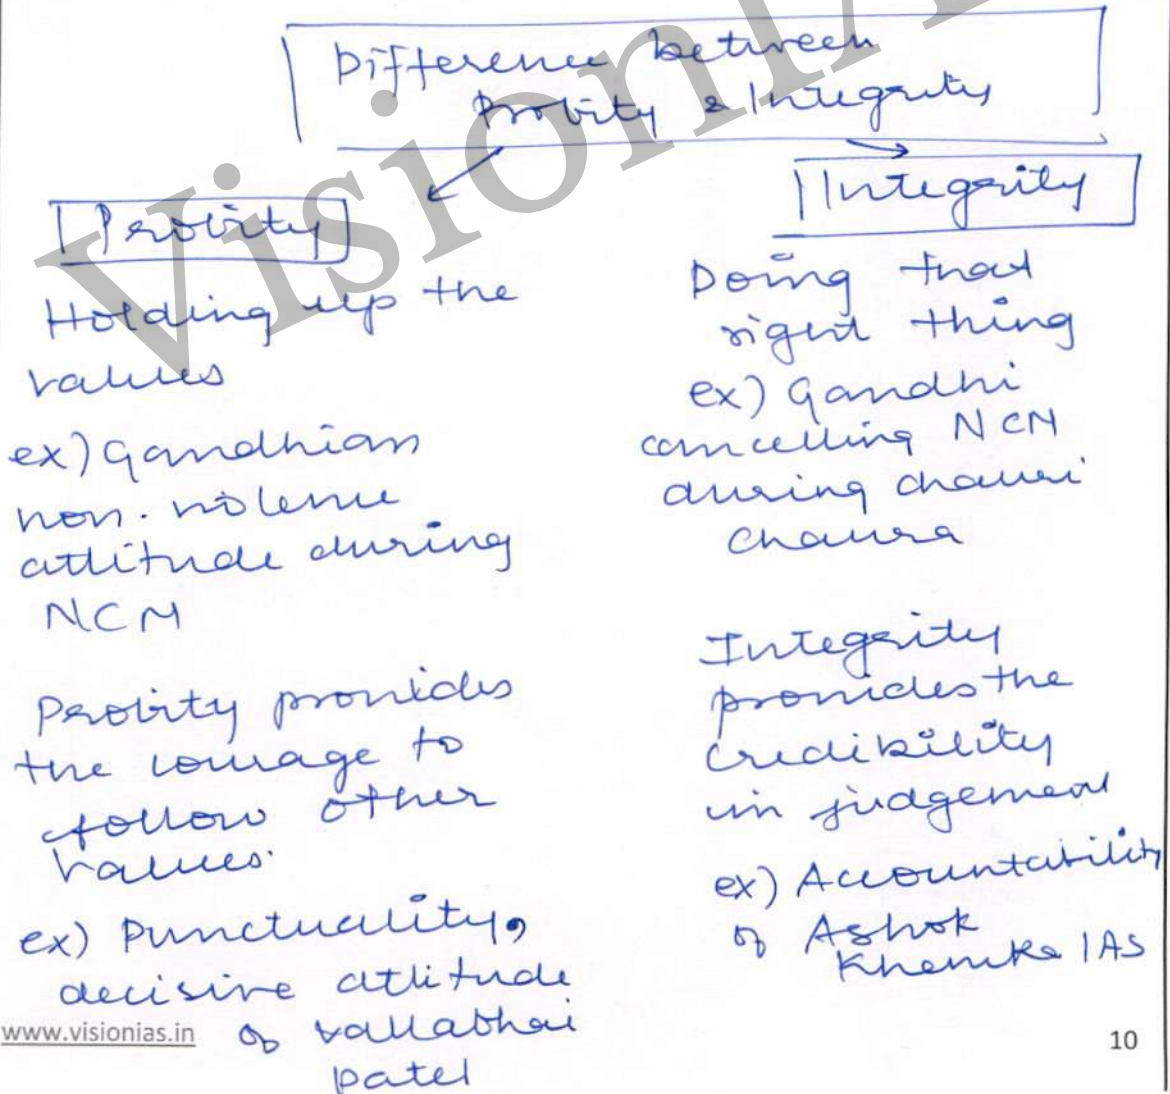 Difference between
Probity & Integrity
Probity
Holding up the
values
ex) Gandhian
non-violence
attitude during
NCM
Probity provides
the courage to
follow other
values.
ex) Punctuality,
decisive attitude
of vallabhai
patel
Integrity
Doing that
right thing
ex) Gandhi
cancelling NCM
during chauri
chaura
Integrity
provides the
credibility
in judgement
ex) Accountability
of Ashok
Khemka IAS
www.visionias.in
10
VisionIA